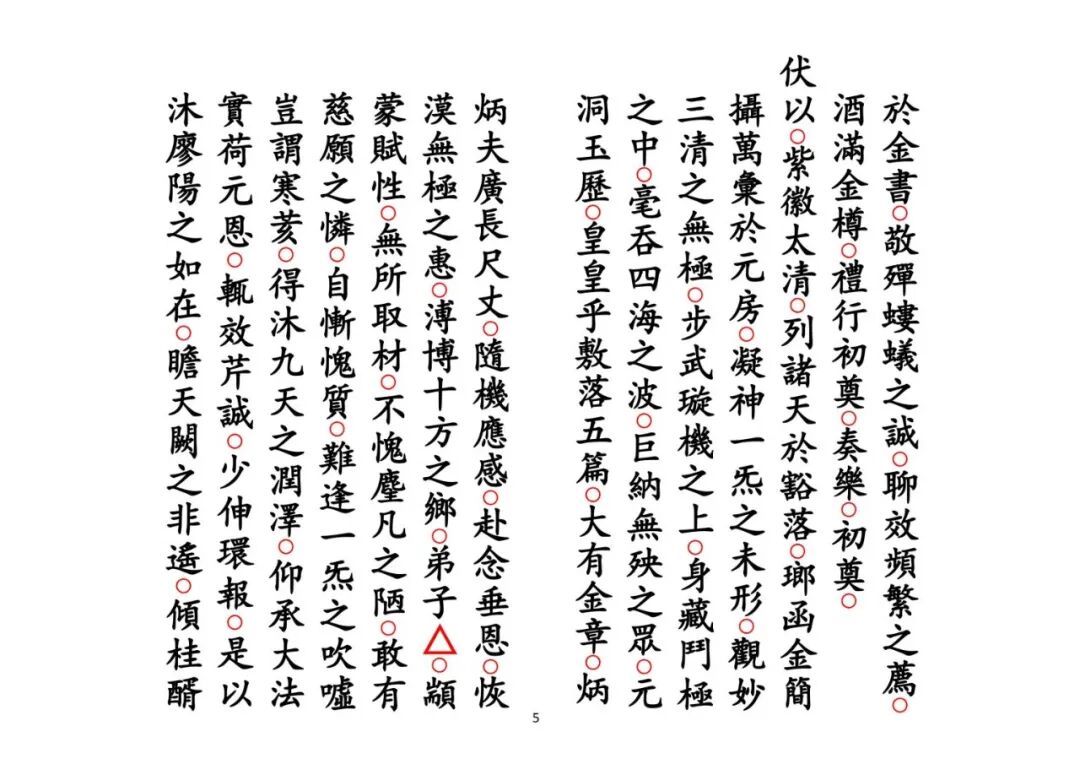 於金書○敬殫螻蟻之誠○聊效頻繁之薦○
酒滿金樽○禮行初奠○奏樂○初奠○
伏以○紫徽太清○列諸天於豁落○瑯函金簡
攝萬彙於元房○凝神一炁之未形○觀妙
三清之無極○步武璇機之上○身藏鬥極
之中○毫吞四海之波○巨納無殃之眾○元
洞玉歷○皇皇乎敷落五篇○大有金章○炳
炳夫廣長尺丈○隨機應感○赴念垂恩○恢
漠無極之惠○溥博十方之鄉○弟子△○顓
蒙賦性○無所取材○不愧塵凡之陋○敢有
慈願之憐○自慚愧質○難逢一炁之吹噓
豈謂寒荄○得沐九天之潤澤○仰承大法
實荷元恩○輒效芹誠○少伸環報○是以
沐廖陽之如在○瞻天闕之非遙○傾桂醑
5